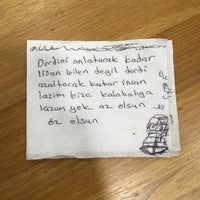 Derdini anlatacak kadar
lisan bilen değil derdi
azaltacak kadar insan
lazım bize kalabalığa
lüzum yok az olsun
öz olsun